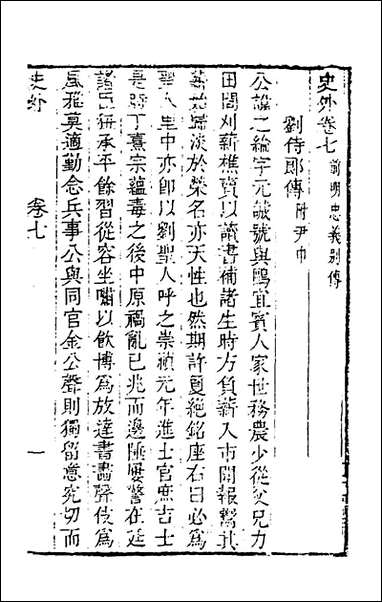 史外卷七 前明忠義別傳
劉侍郎傳 附尹巾
公諱之綸字元誠號與鷗宜賓人家世務農少從父兄力
田間刈薪樵賣以讀書補諸生時方負薪入市聞報鬻其
薪始歸淡於榮名亦天性也然期許夐絶銘座右曰必為
聖人里中亦卽以劉聖人呼之崇禎元年進士官庶吉士
是時丁熹宗蘊毒之後中原禍亂已兆而邊陲屢警在廷
諸臣狃承平餘習從容坐嘯以飲博為放達書畫聲伎為
風雅莫適勤念兵事公與同官金公聲則獨留意究切而
史外 卷七 一